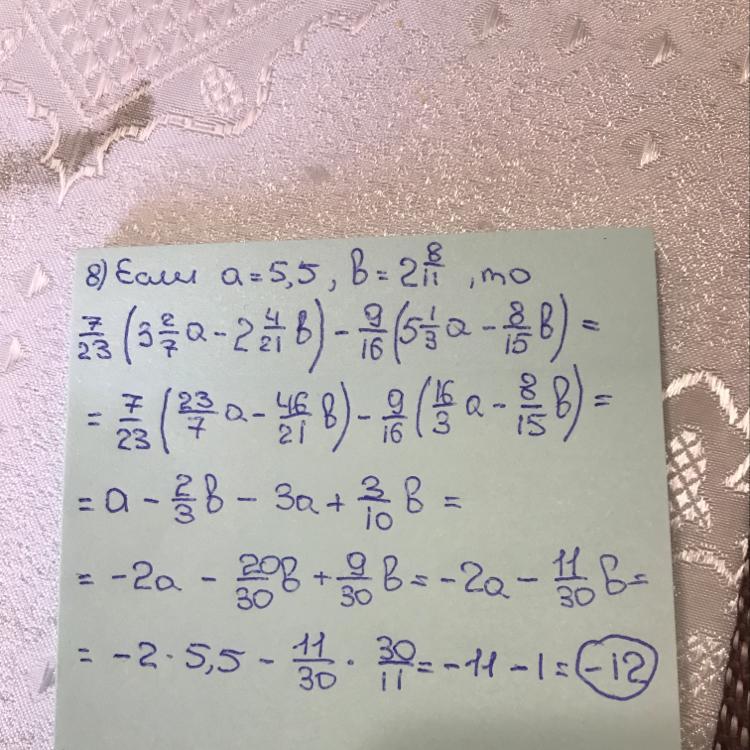 8) Если a = 5,5, b = 2 8/11, то
7/23 (3 2/7 a - 2 4/21 b) - 9/16 (5 1/3 a - 8/15 b) =
= 7/23 (23/7 a - 46/21 b) - 9/16 (16/3 a - 8/15 b) =
= a - 2/3 b - 3a + 3/10 b =
= -2a - 20/30 b + 9/30 b = -2a - 11/30 b =
= -2 · 5,5 - 11/30 · 30/11 = -11 - 1 = -12